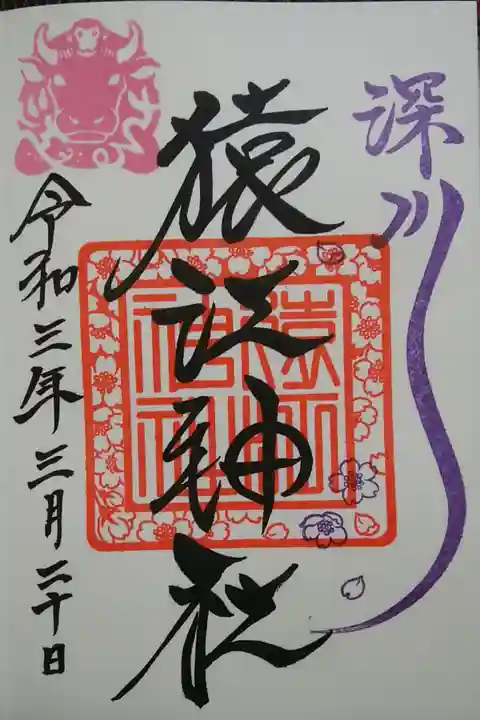 深川
猿江神社
猿江神社
令和三年三月二十日